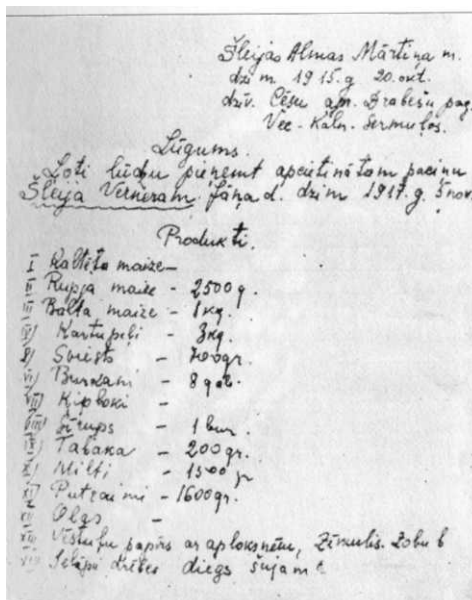 Šleijas Almas Mārtiņa m.
dzim 1915.g 20.okt.
dzīv. Cēsu apr. Drabešu pag.
Vec-Kaln-Sermuļos.
Lūgums.
Ļoti lūdzu pieņemt apcietinātam paciņu
Šleija Verneram Jāņa d. dzim 1917.g. 5 nov.
Produkti
I Kaltēta maize -
II Rupja maize - 2500g.
III Balta maize - 1kg.
IV) Kartupeļi - 3kg
V) Sviests - 700gr.
VI) Burkāni - 8 gab.
VII) Ķiploki -
VIII) Sīrups - 1 bur.
IX) Tabaka - 200gr.
X) Milti - 1500 gr
XI) Putraimi - 1600gr.
XII Olas -
XIII Vēstuļu papīrs ar aploksnēm, Zīmulis. Zobu b
XIV drēbes diegs šujam